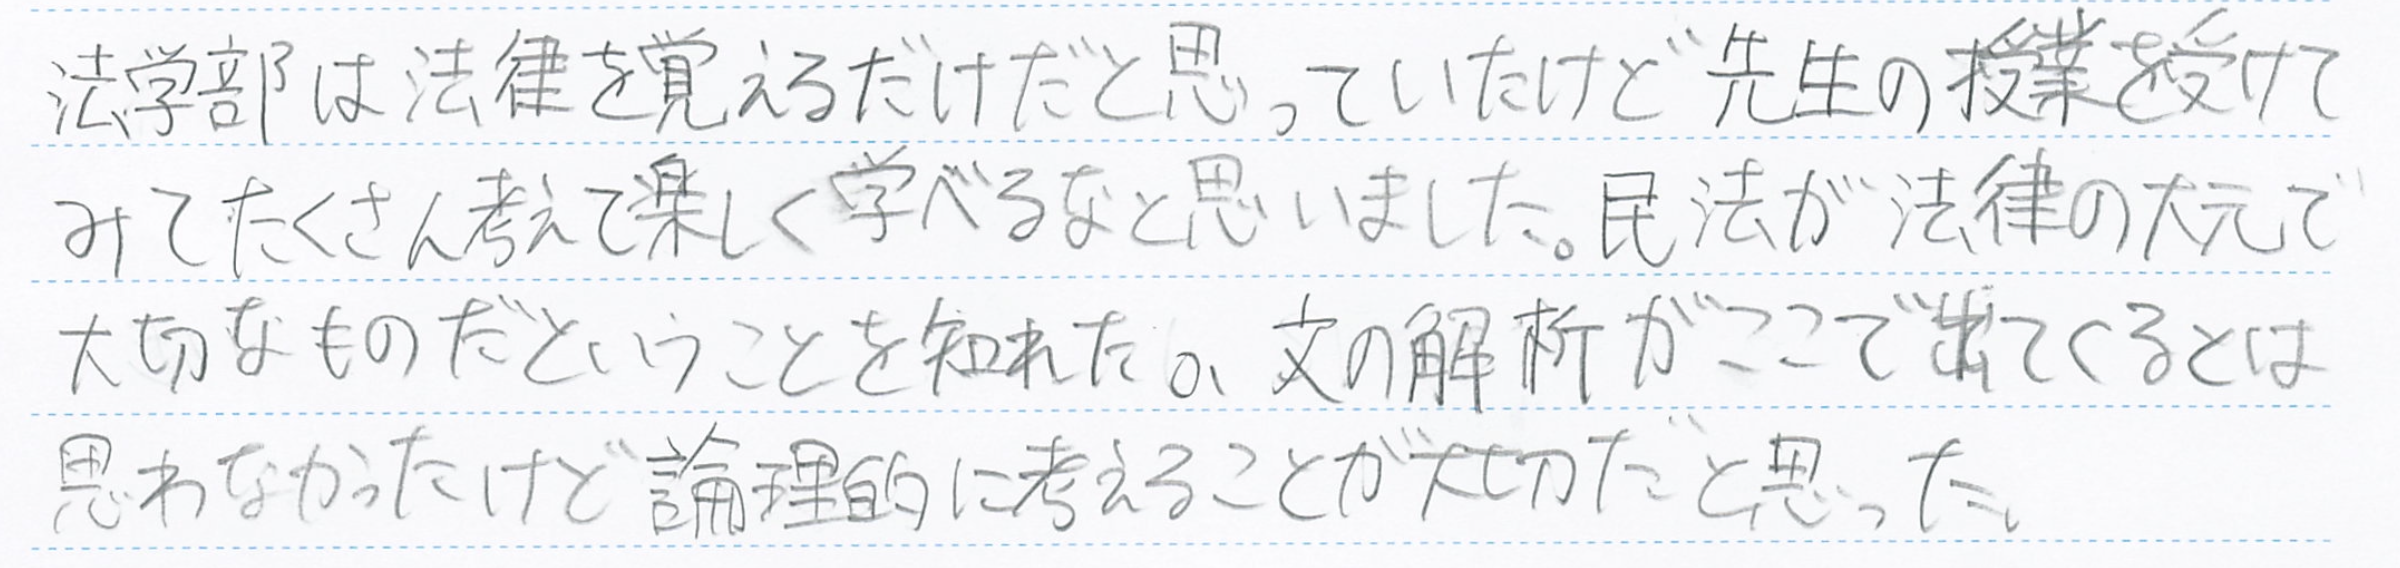 法学部は法律を覚えるだけだと思っていたけど先生の授業を受けて
みてたくさん考えて楽しく学べるなと思いました。民法が法律の大元で
大切なものだということを知れた。文の解析がここで出てくるとは
思わなかったけど論理的に考えることが大切だと思った、